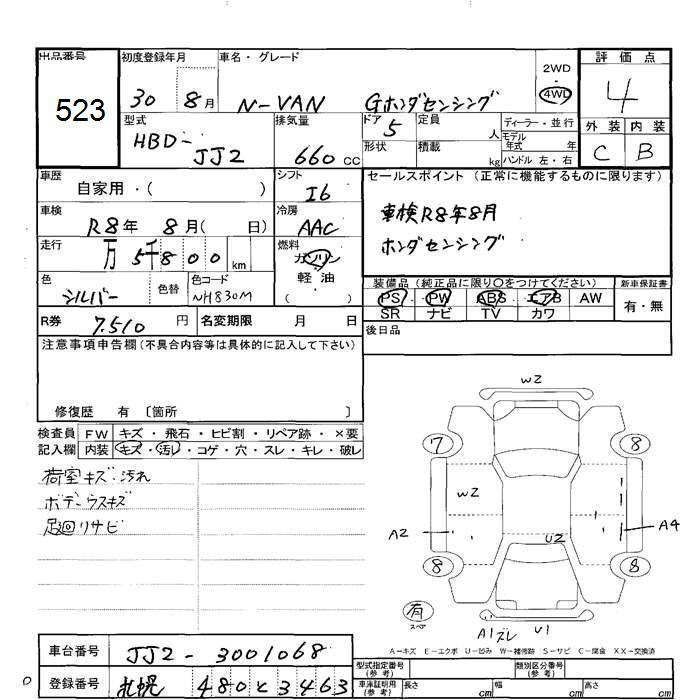 出品番号
523
初度登録年月
30 8月
車名・グレード
N-VAN Gホンダセンシング
2WD
・
4WD
評価点
4
外装 内装
C B
型式
HBD-
JJ2
排気量
660 CC
ドア
5
定員
人
ディーラー・並行
モデル
年式 年
形状
積載
kg
ハンドル 左・右
車歴
自家用・( )
シフト
I6
セールスポイント (正常に機能するものに限ります)
車検R8年8月
ホンダセンシング
車検
R8年 8月( 日)
冷房
AAC
走行
万 5千800 km
燃料
ガソリン
軽・油
( )
色
シルバー
色替
色コード
NH830M
装備品 (純正品に限り〇をつけてください)
PS PW ABS エアB AW
SR ナビ TV カワ
新車保証書
有・無
R券
7.510 円
名変期限 月 日
後日品
注意事項申告欄(不具合内容等は具体的に記入して下さい)
修復歴 有 〔箇所 〕
検査員
記入欄
FW キズ・飛石・ヒビ割・リペア跡・×要
内装 キズ・汚れ・コゲ・穴・スレ・キレ・破レ
荷室キズ・汚れ
ボデーウスキズ
足廻リサビ
W2
7
8
W2
A2
U2
A4
8
8
有
スペア
A1ズレ
U1
A-キズ E-エクボ U-凹み W-補修跡 S-サビ C-腐食 XX-交換済
車台番号
JJ2-3001068
登録番号
札幌 480と3463
型式指定番号
(参考)
類別区分番号
(参考)
車庫証明用
(参考)
長さ cm
幅 cm
高さ cm